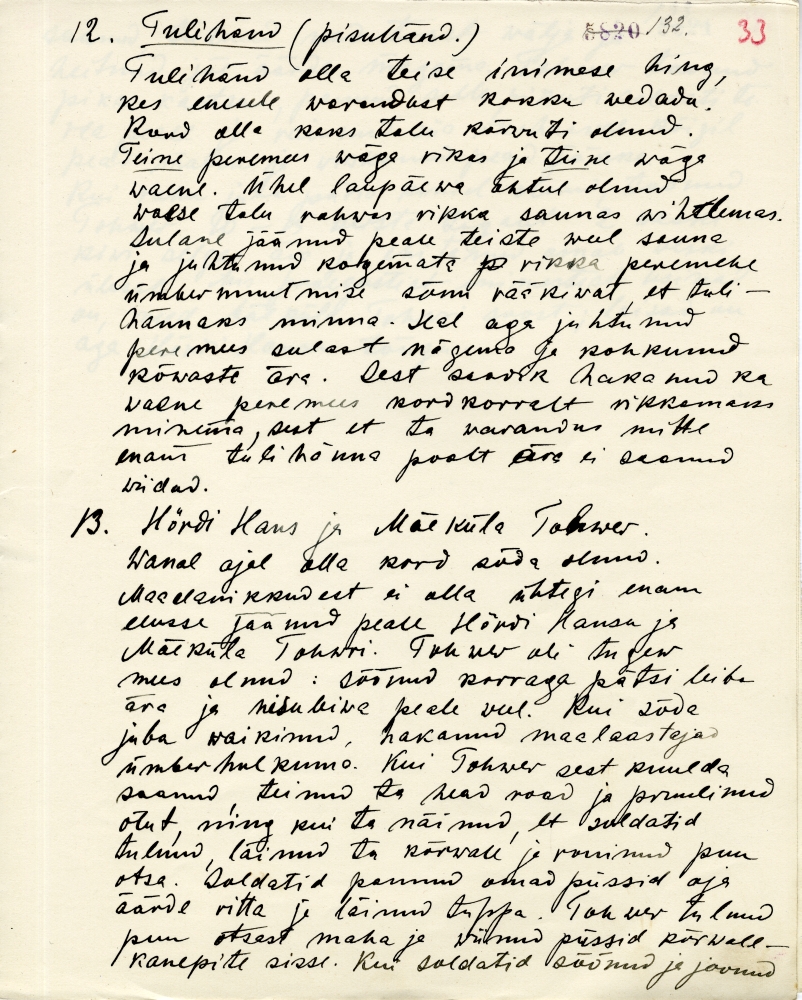 12. Tulihänd (pisuhänd.) 5820 /132. 33
Tulihänd olla teise inimese hing,
kes enesele warandust kokku wedada.
Kord olla kaks talu kõrwuti olnud.
Teine peremees wäga rikas ja teine wäga
waene. Ühel laupäewa õhtul olnud
waese talu rahwas rikka saunas wihtlemas.
Sulane jäänud peale teiste weel sauna
ja juhtunud kogemata rikka peremehe
ümbermuutmise sõnu rääkiwat, et tuli-
hännaks minna. Sel aga juhtunud
peremees sulast nägema ja kohkunud
kõwaste ära. Sest saadik hakanud ka
waene peremees kordkorralt rikkamaks
minema, sest et ta warandus mitte
enam tulihänna poolt ära ei saanud
wiidud.
13. Hördi Hans ja Mäeküla Tohwer.
Wanal ajal olla kord sõda olnud.
Maaelanikkudest ei olla ühtegi enam
elusse jäänud peale Hördi Hansu ja
Mäeküla Tohwri. Tohwer oli tugew
mees olnud: söönud korraga pätsi leiba
ära ja peale weel. Kui sõda
juba waikinud, hakanud maalaastajad
ümber hulkuma. Kui Tohwer sest kuulda
saanud, teinud ta head road ja pruulinud
õlut, ning kui ta näinud, et soldatid
tulnud, läinud ta kõrwale ja roninud puu
otsa. Soldatid pannud omad püssid aja
äärde ritta ja läinud tuppa. Tohwer tulnud
puu otsast maha ja wiinud püssid kõrwale-
kanepite sisse. Kui soldatid söönud ja joonud